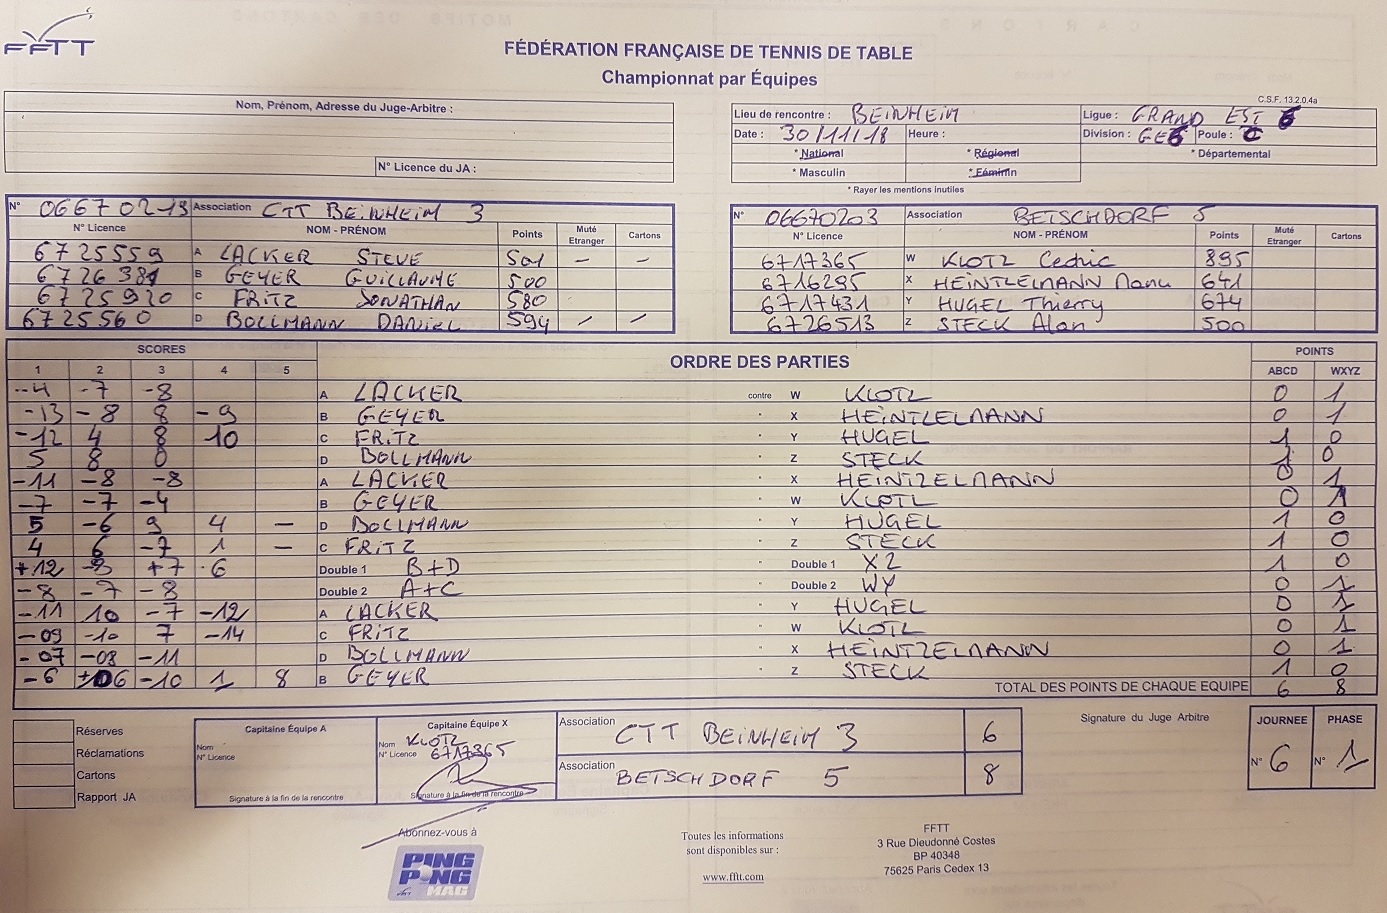 FFTT
FÉDÉRATION FRANÇAISE DE TENNIS DE TABLE
Championnat par Équipes
C.S.F. 13.2.0.4a
Nom, Prénom, Adresse du Juge-Arbitre :
N° Licence du JA :
Lieu de rencontre : BEINHEIM Ligue : GRAND EST
Date : 30/11/18 Heure : Division : GE6 Poule : C
* National * Régional * Départemental
* Masculin * Féminin
* Rayer les mentions inutiles
N° 06670219 Association CTT BEINHEIM 3
N° Licence NOM - PRÉNOM Points Muté Etranger Cartons
6725559 A LACKER STEVE 501 — —
6726381 B GEYER GUILLAUME 500
6725920 C FRITZ JONATHAN 580
6725560 D BOLLMANN DANIEL 594 — —
N° 06670203 Association BETSCHDORF 5
N° Licence NOM - PRÉNOM Points Muté Etranger Cartons
6717365 W KLOTZ Cedric 895
6716295 X HEINTZELMANN Manu 641
6717431 Y HUGEL Thierry 674
6726513 Z STECK Alan 500
SCORES ORDRE DES PARTIES POINTS
1 2 3 4 5 ABCD WXYZ
-4 -7 -8 A LACKER contre W KLOTZ 0 1
-13 -8 8 -9 B GEYER " X HEINTZELMANN 0 1
-12 4 8 10 C FRITZ " Y HUGEL 1 0
5 8 8 D BOLLMANN " Z STECK 1 0
-11 -8 -8 A LACKER " X HEINTZELMANN 0 1
-7 -7 -4 B GEYER " W KLOTZ 0 1
5 -6 9 4 — D BOLLMANN " Y HUGEL 1 0
4 6 -7 1 — C FRITZ " Z STECK 1 0
+12 -8 +7 6 Double 1 B+D Double 1 XZ 1 0
-8 -7 -8 Double 2 A+C Double 2 WY 0 1
-11 10 -7 -12 A LACKER " Y HUGEL 0 1
-09 -10 7 -14 C FRITZ " W KLOTZ 0 1
-07 -08 -11 D BOLLMANN " X HEINTZELMANN 0 1
-6 06 -10 1 8 B GEYER " Z STECK 1 0
TOTAL DES POINTS DE CHAQUE EQUIPE 6 8
Réserves
Réclamations
Cartons
Rapport JA
Capitaine Équipe A
Nom
N° Licence
Signature à la fin de la rencontre
Capitaine Équipe X
Nom KLOTZ
N° Licence 6717365
Signature à la fin de la rencontre
Association CTT BEINHEIM 3 6
Association BETSCHDORF 5 8
Signature du Juge Arbitre
JOURNEE PHASE
N° 6 N° 1
Abonnez-vous à
PING PONG MAG
Toutes les informations
sont disponibles sur :
www.fftt.com
FFTT
3 Rue Dieudonné Costes
BP 40348
75625 Paris Cedex 13